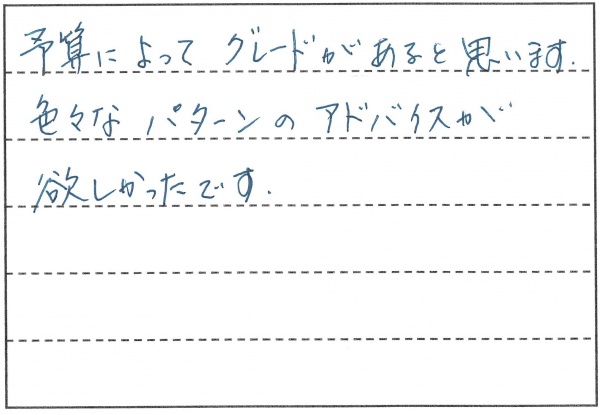 予算によって グレードがあると思います.
色々な パターンの アドバイスが
欲しかったです.